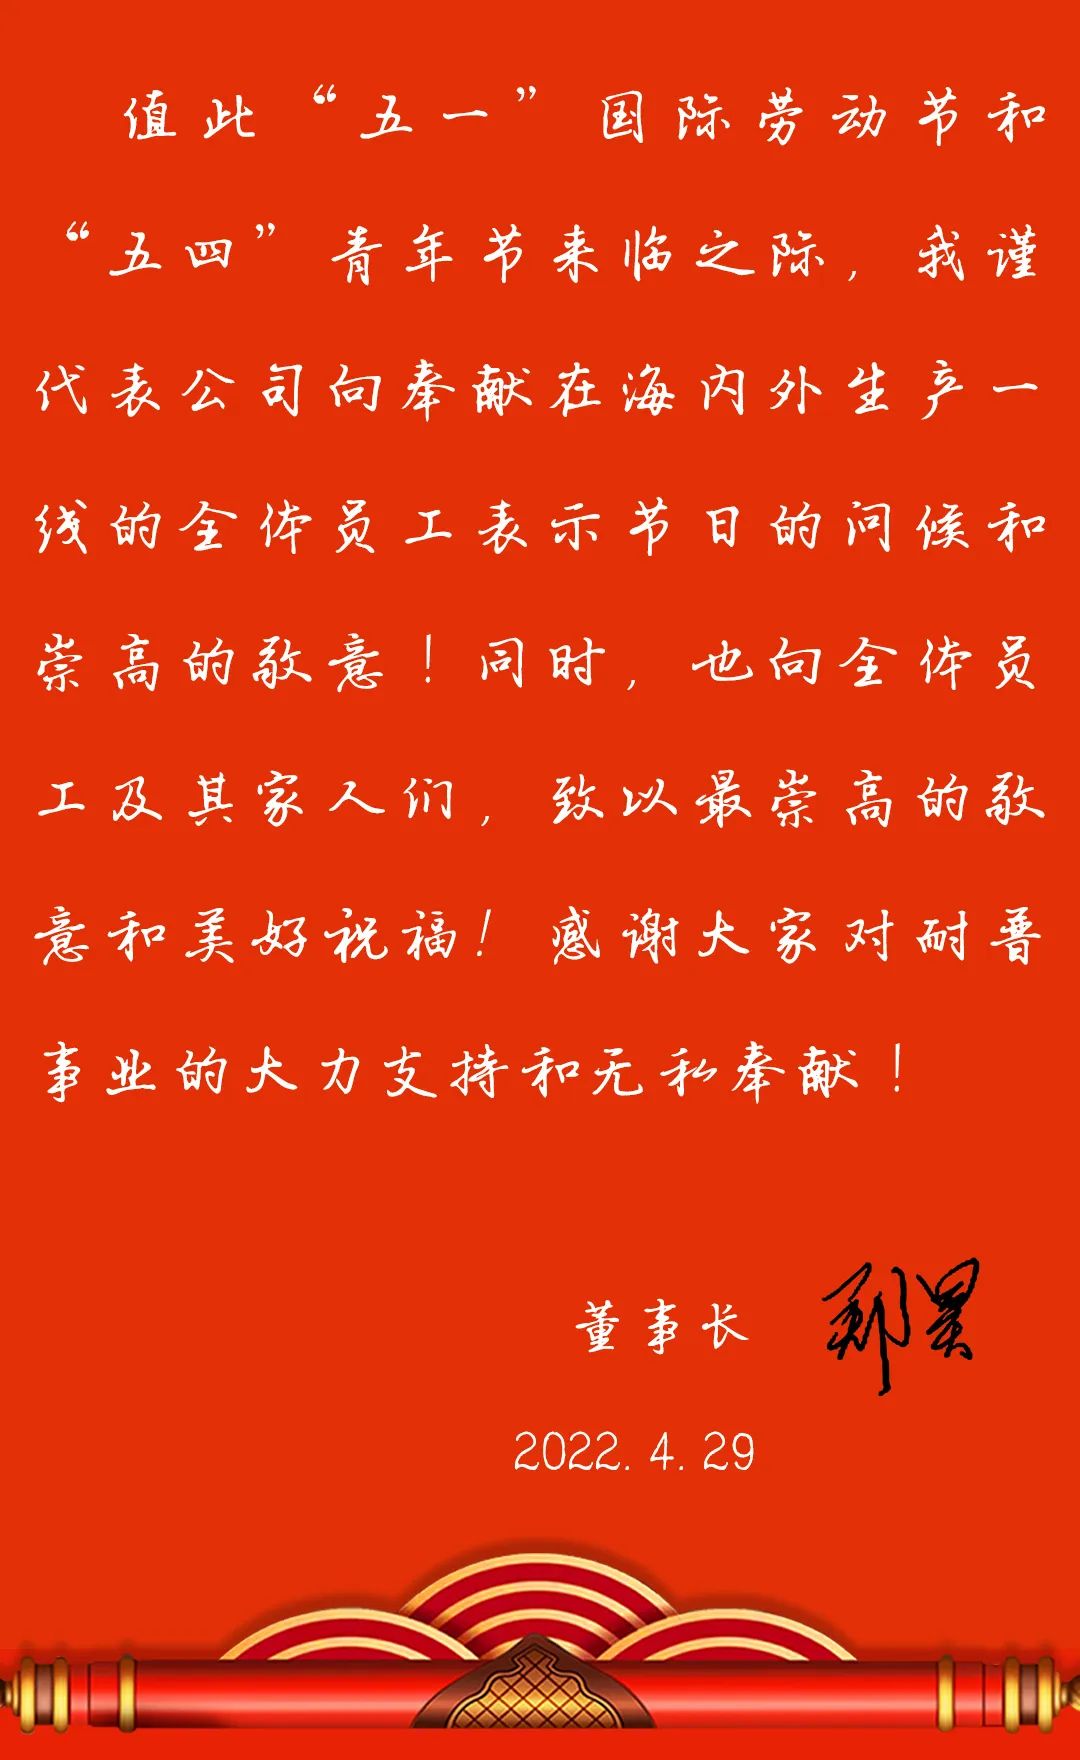 值此“五一”国际劳动节和
“五四”青年节来临之际，我谨
代表公司向奉献在海内外生产一
线的全体员工表示节日的问候和
崇高的敬意！同时，也向全体员
工及其家人们，致以最崇高的敬
意和美好祝福！感谢大家对耐普
事业的大力支持和无私奉献！
董事长 郑昊
2022.4.29